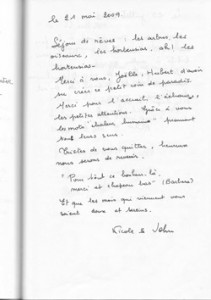 le 21 mai 2009
Séjour de rêves : les arbres, les
oiseaux, les hortensias, ah ! les
hortensias.
Merci à vous, Joëlle, Hubert d'avoir
su créer ce petit coin de paradis
Merci pour l'accueil
les petites attentions. Grâce à vous
les mots "chaleur humaine" prennent
tout leur sens.
Tristes de vous quitter, heureux
nous serons de revenir.
"Pour tout ce bonheur-là,
merci et chapeau bas" (Barbara)
Et que les mois qui viennent vous
soient doux et sereins.
Nicole & John